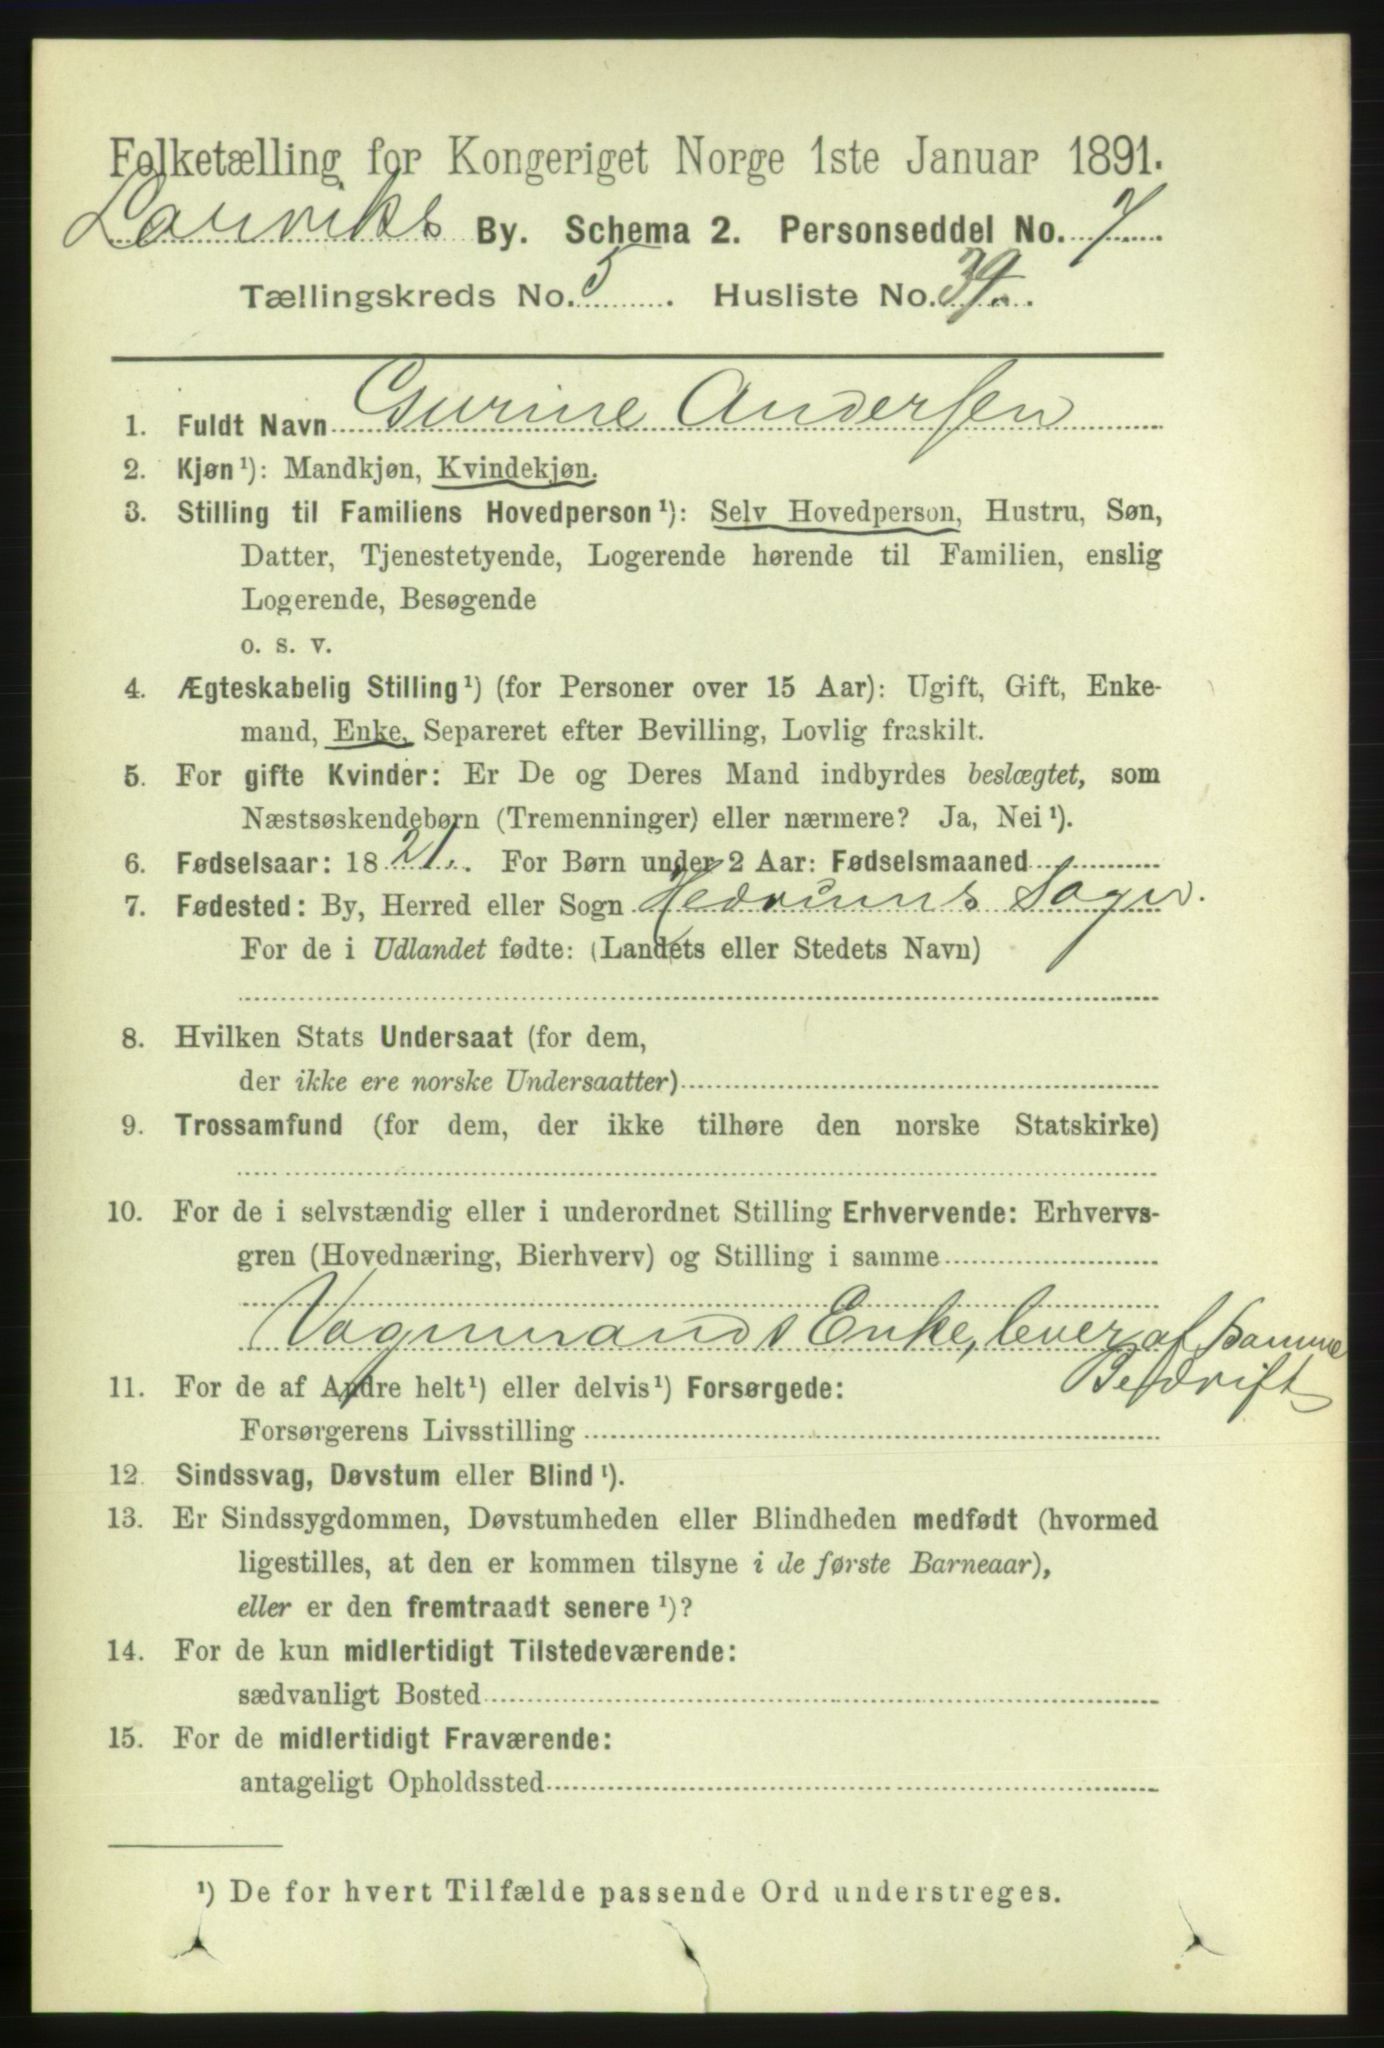 Folketælling for Kongeriget Norge 1ste Januar 1891.
Laurviks By. Schema 2. Personseddel No. 7
Tællingskreds No. 5. Husliste No. 39.
1. Fuldt Navn Gurine Andersen
2. Kjøn¹): Mandkjøn, Kvindekjøn.
3. Stilling til Familiens Hovedperson¹): Selv Hovedperson, Hustru, Søn,
Datter, Tjenestetyende, Logerende hørende til Familien, enslig
Logerende, Besøgende
o. s. v.
4. Ægteskabelig Stilling¹) (for Personer over 15 Aar): Ugift, Gift, Enke-
mand, Enke, Separeret efter Bevilling, Lovlig fraskilt.
5. For gifte Kvinder: Er De og Deres Mand indbyrdes beslægtet, som
Næstsøskendebørn (Tremenninger) eller nærmere? Ja, Nei¹).
6. Fødselsaar: 1821. For Børn under 2 Aar: Fødselsmaaned
7. Fødested: By, Herred eller Sogn Hedrums Sogn.
For de i Udlandet fødte: (Landets eller Stedets Navn)
8. Hvilken Stats Undersaat (for dem,
der ikke ere norske Undersaatter)
9. Trossamfund (for dem, der ikke tilhøre den norske Statskirke)
10. For de i selvstændig eller i underordnet Stilling Erhvervende: Erhvervs-
gren (Hovednæring, Bierhverv) og Stilling i samme
Vognmands Enke, lever af samme
Bedrift
11. For de af Andre helt¹) eller delvis¹) Forsørgede:
Forsørgerens Livsstilling
12. Sindssvag, Døvstum eller Blind¹).
13. Er Sindssygdommen, Døvstumheden eller Blindheden medfødt (hvormed
ligestilles, at den er kommen tilsyne i de første Barneaar),
eller er den fremtraadt senere¹)?
14. For de kun midlertidigt Tilstedeværende:
sædvanligt Bosted
15. For de midlertidigt Fraværende:
antageligt Opholdssted
¹) De for hvert Tilfælde passende Ord understreges.